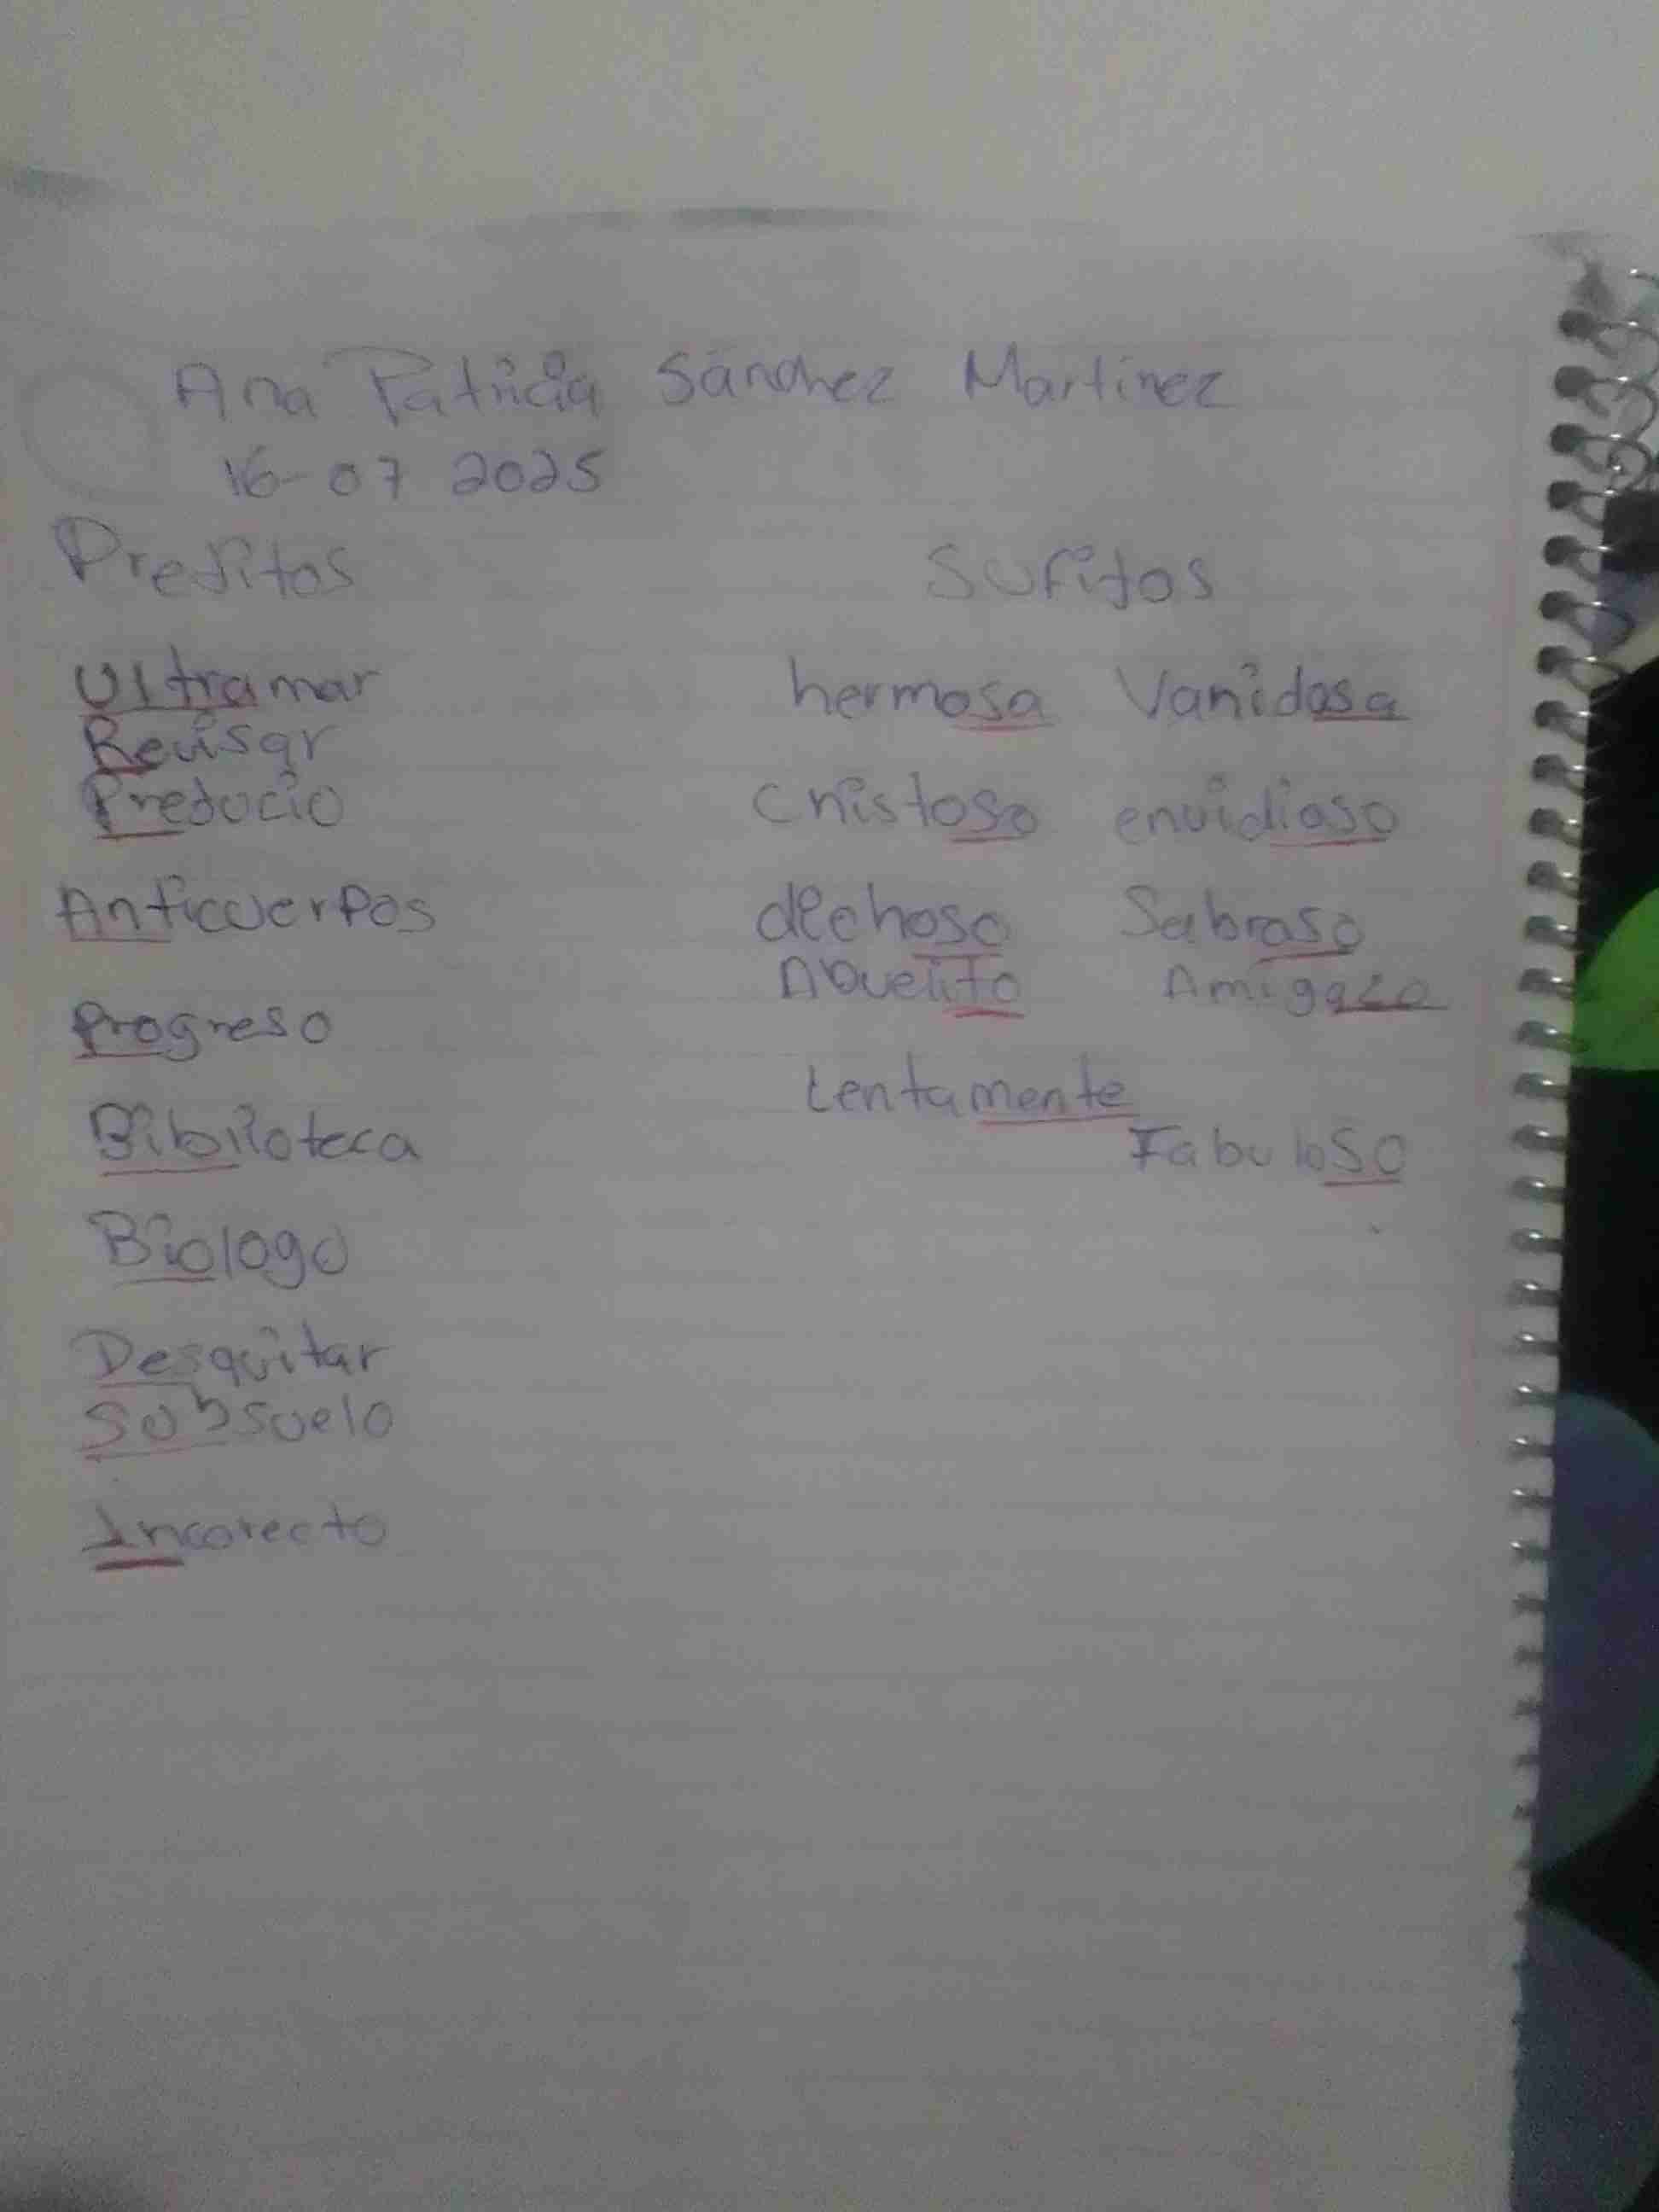 Ana Patricia Sánchez Martinez
16-07 2025
Prefijos
Sufijos
Ultramar
Revisar
Prejucio
Anticuerpos
Progreso
Biblioteca
Biologo
Desquitar
Subsuelo
Incorecto
hermosa Vanidosa
chistoso envidioso
dichoso Sabroso
Abuelito Amigazo
Lentamente
Fabuloso